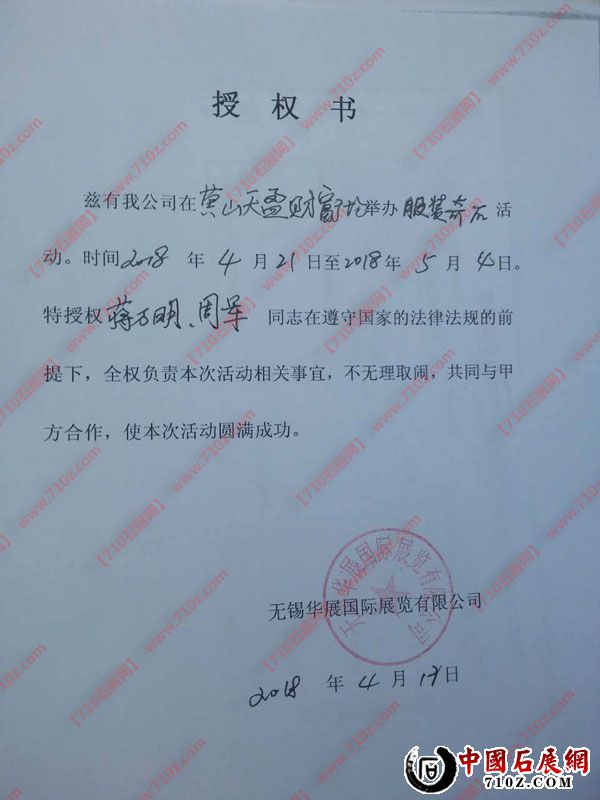 授权书
兹有我公司在黄山天盈财富广场举办服装奇石活
动。时间2018年4月21日至2018年5月4日。
特授权蒋万明、周军 同志在遵守国家的法律法规的前
提下，全权负责本次活动相关事宜，不无理取闹，共同与甲
方合作，使本次活动圆满成功。
无锡华展国际展览有限公司
无锡华展国际展览有限公司
2018年4月17日
【710石展网】www.710z.com
中國石展網
710Z.COM